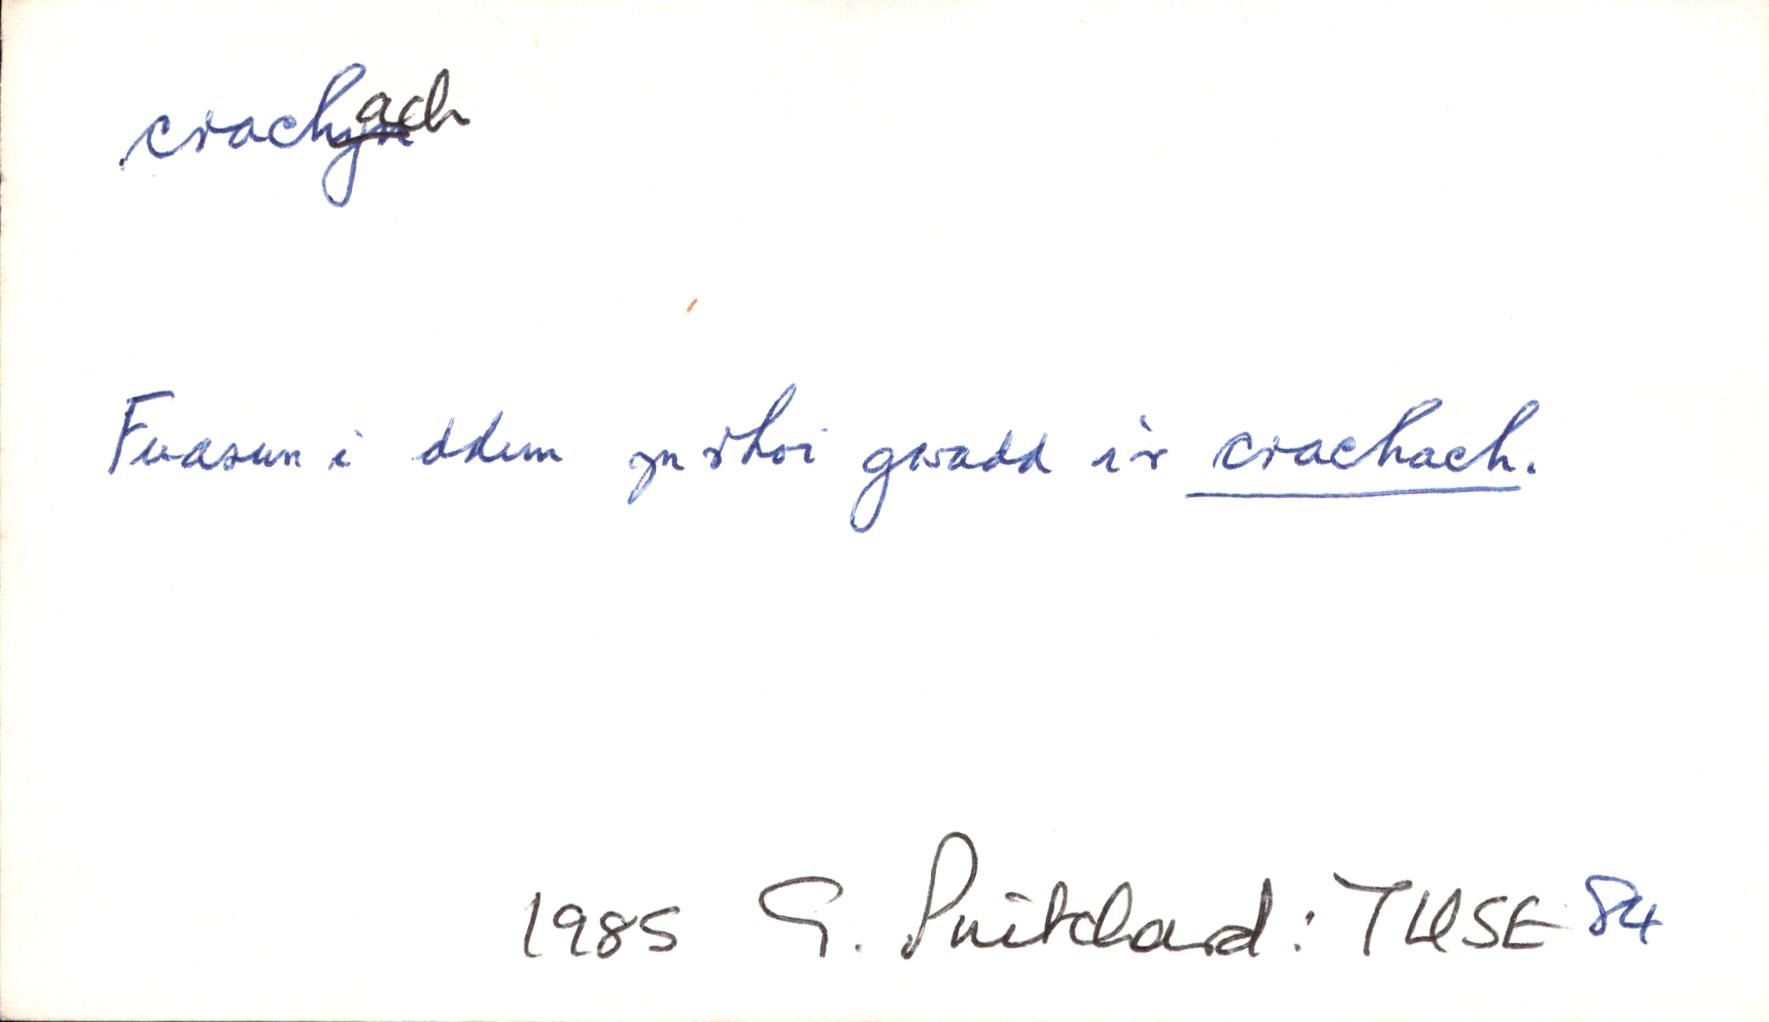 crachach
Fuasun i ddim yn rhoi gwadd i'r crachach.
1985 G. Pritchard: THSE 84